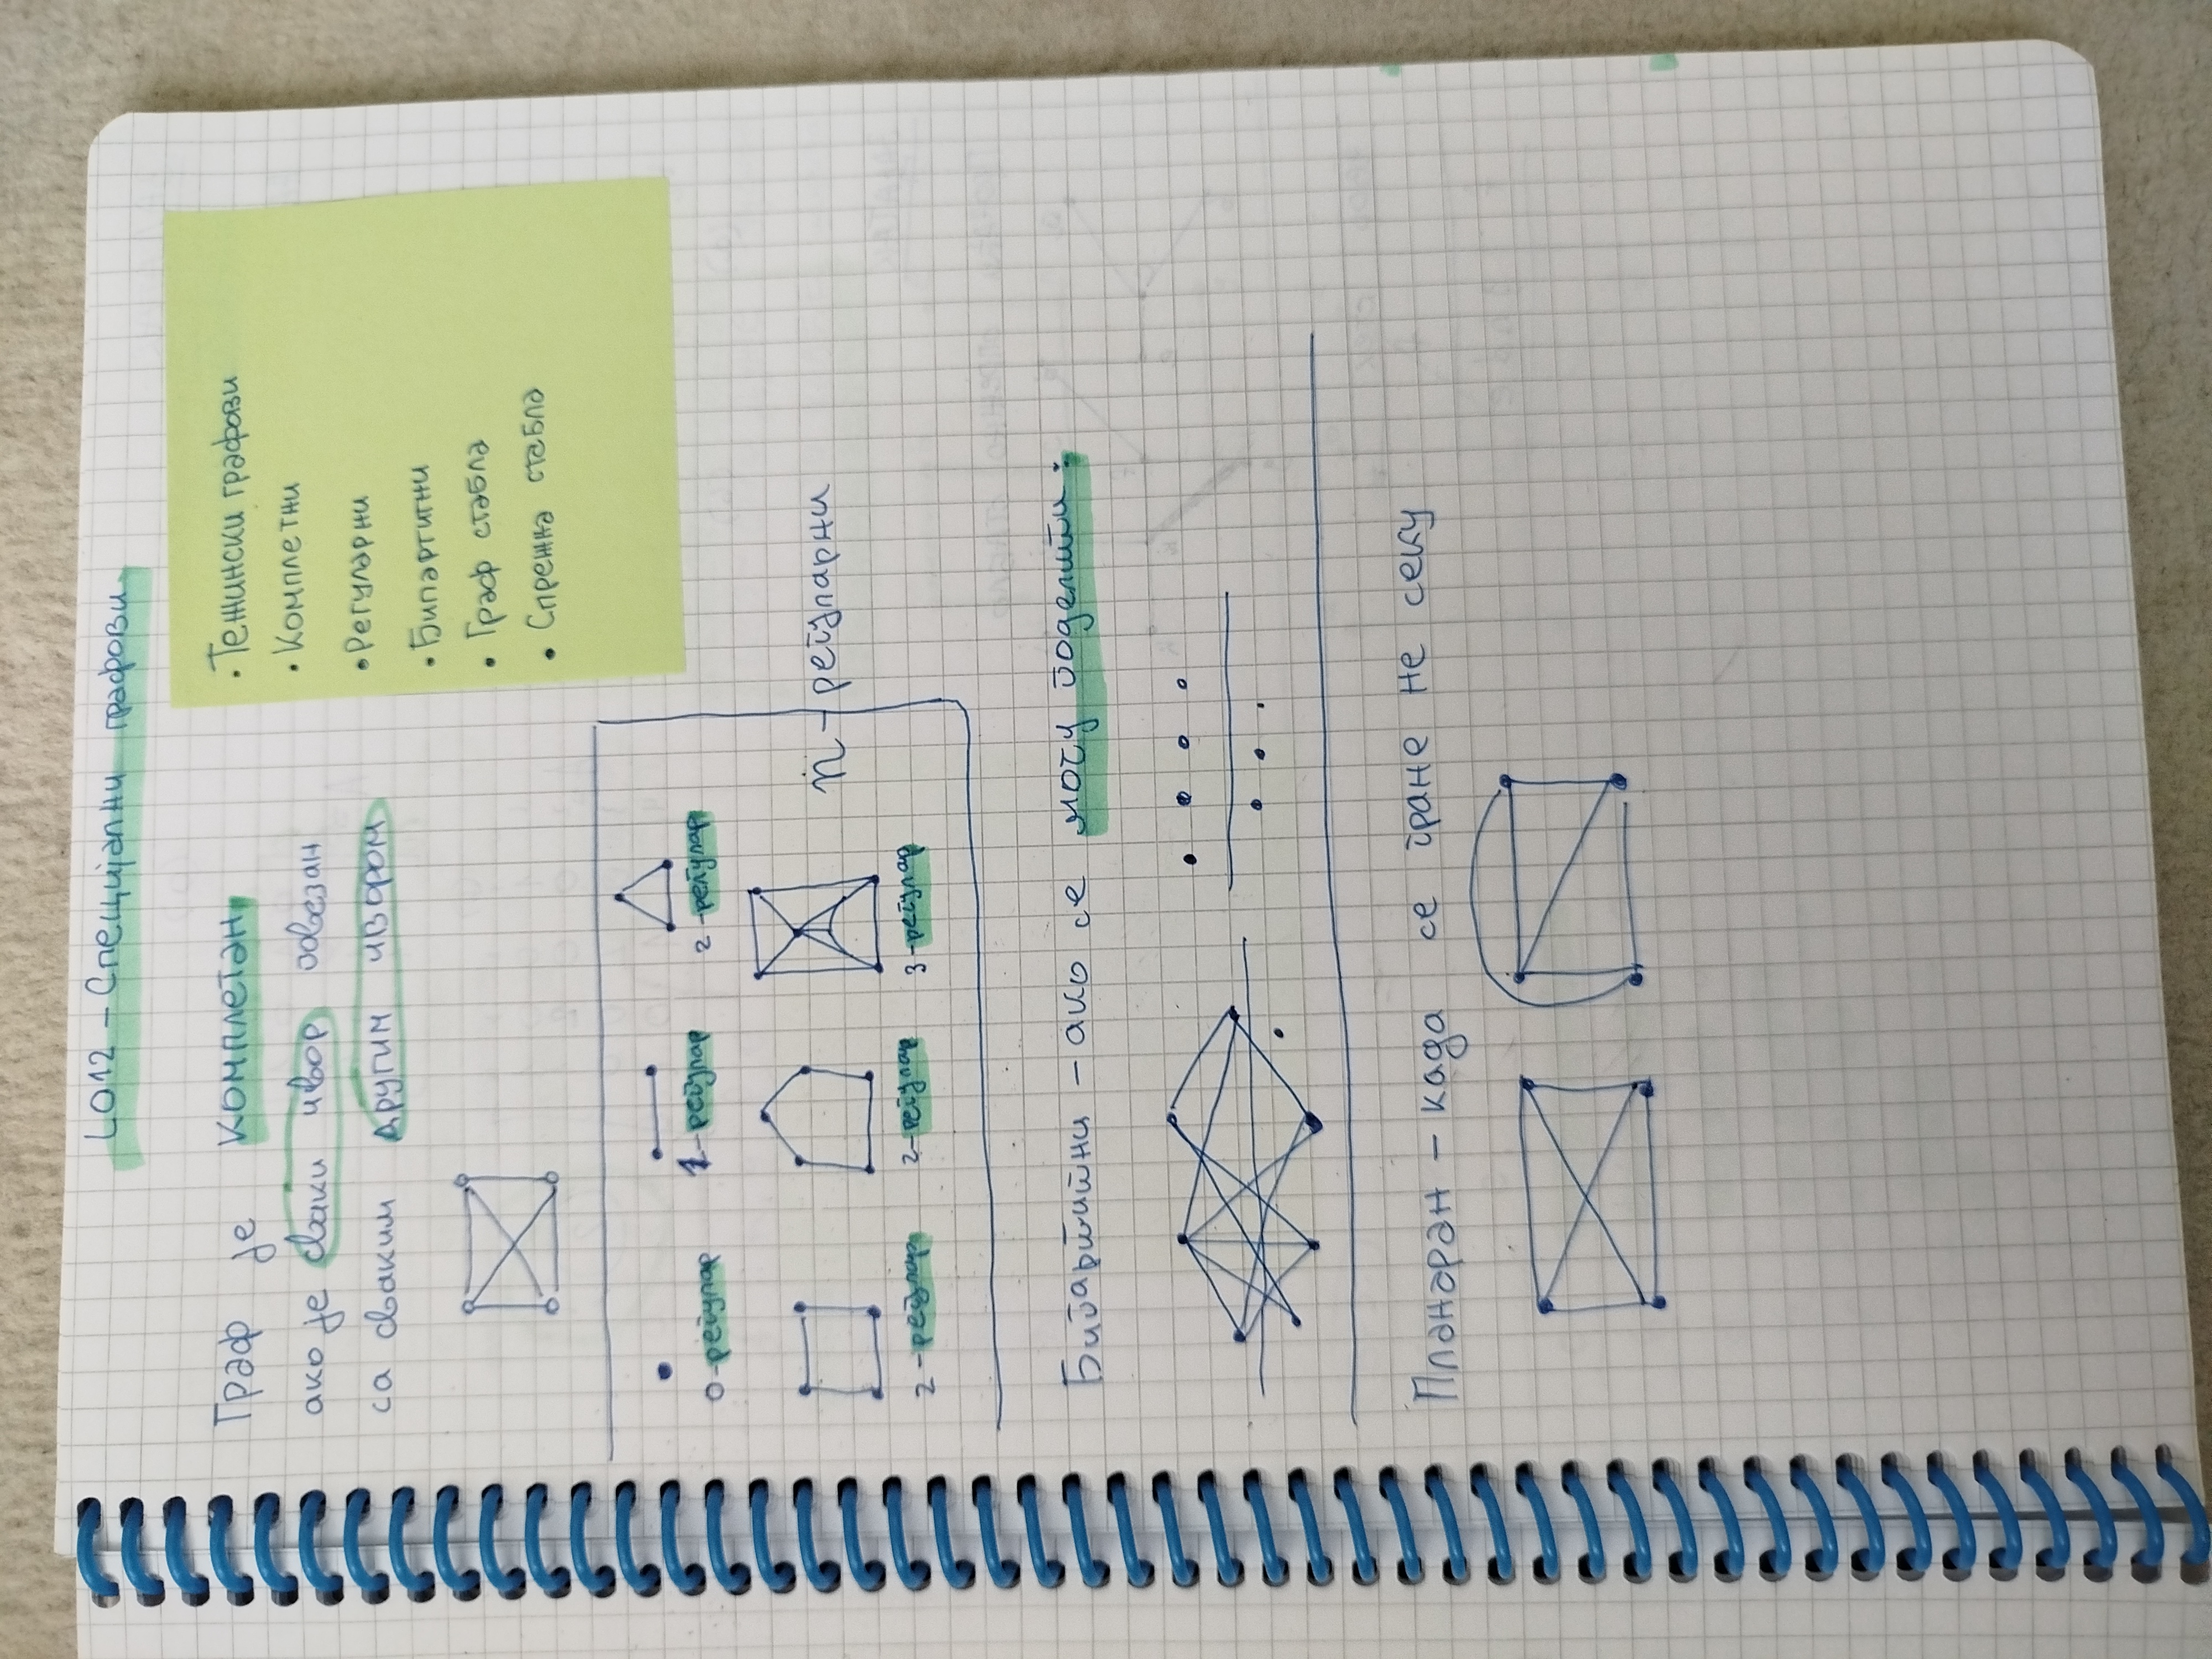 L012 – Специјални графови
• Тежински графови
• Комплетни
• Регуларни
• Бипартитни
• Граф стабла
• Спрежна стабла
Граф је комплетан
ако је сваки чвор повезан
са сваким другим чвором
0-регулар 1-регулар 2-регулар
2-регулар 2-регулар 3-регулар
n-регуларни
Бипартитни – ако се могу поделити:
Планаран – када се гране не секу